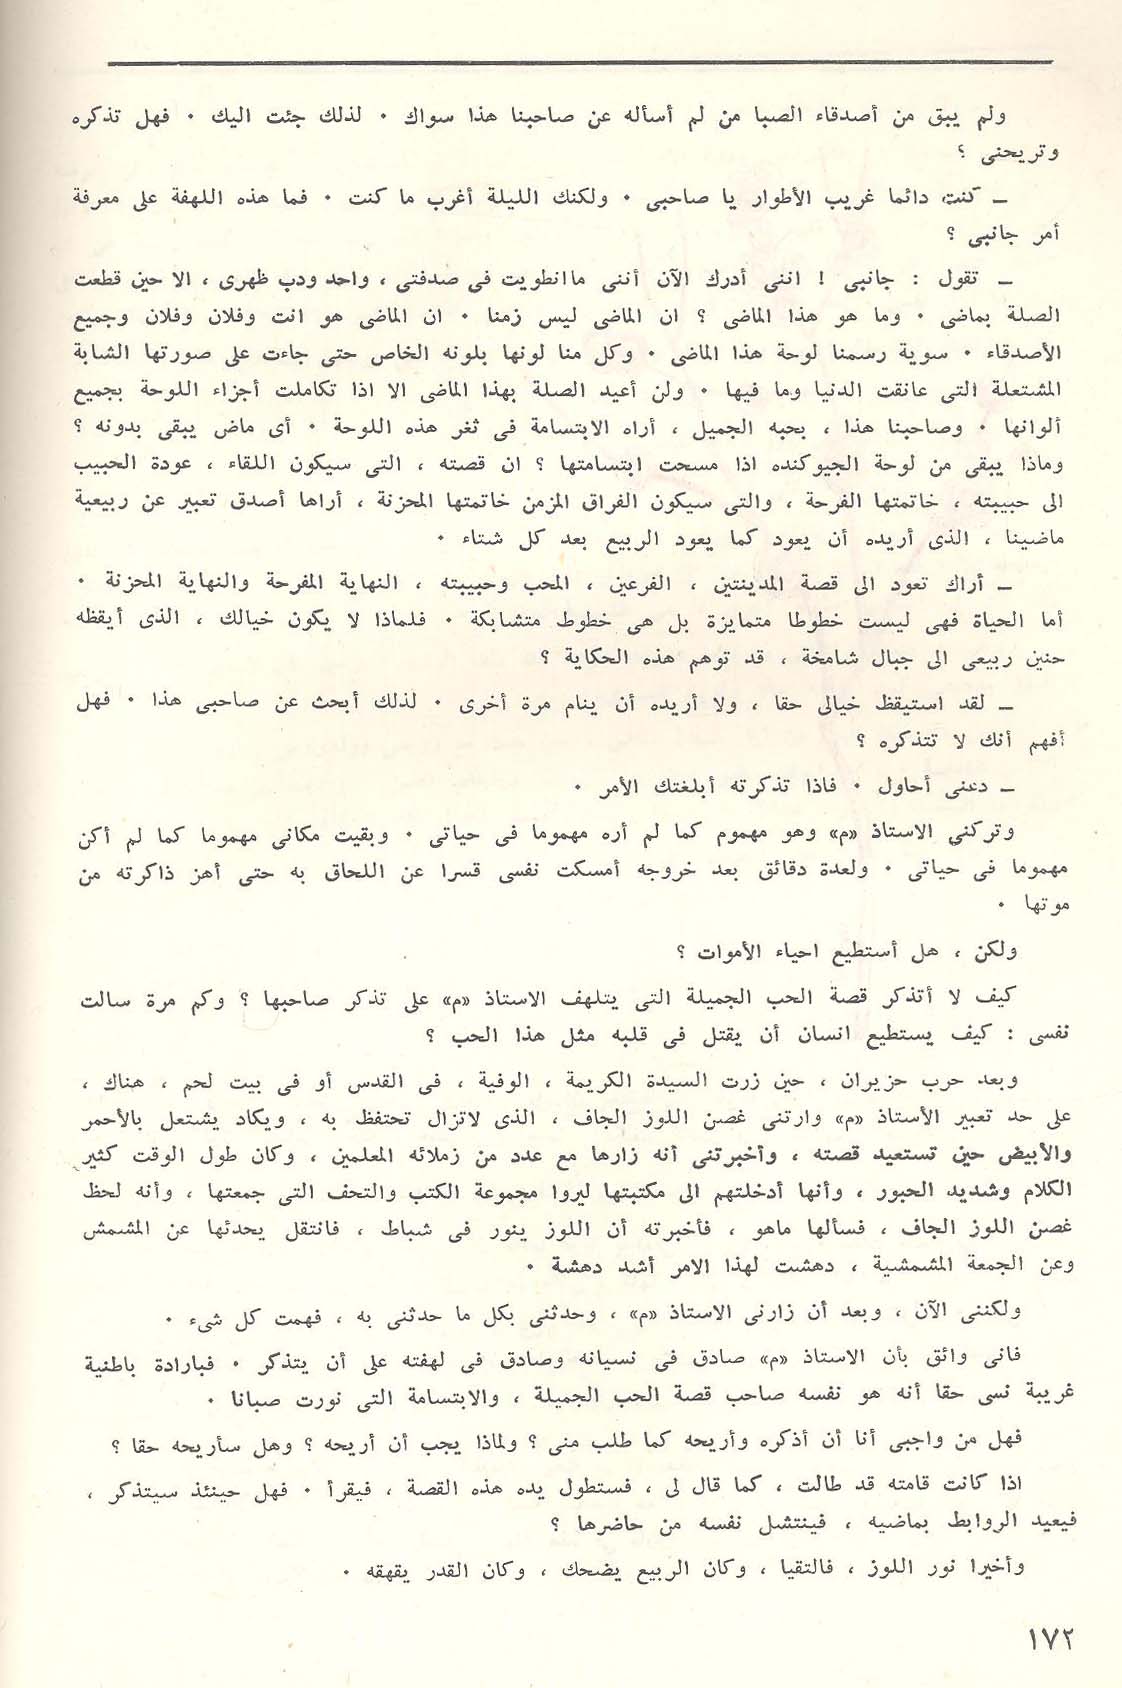 ولم يبق من أصدقاء الصبا من لم أسأله عن صاحبنا هذا سواك ٠ لذلك جئت اليك ٠ فهل تذكره
وتريحنى ؟
ـ كنت دائما غريب الأطوار يا صاحبى ٠ ولكنك الليلة أغرب ما كنت ٠ فما هذه اللهفة على معرفة
أمر جانبى ؟
ـ تقول : جانبى ! اننى أدرك الآن أننى ماانطويت فى صدفتى ، واحد ودب ظهرى ، الا حين قطعت
الصلة بماضى ٠ وما هو هذا الماضى ؟ ان الماضى ليس زمنا ٠ ان الماضى هو انت وفلان وفلان وجميع
الأصدقاء ٠ سوية رسمنا لوحة هذا الماضى ٠ وكل منا لونها بلونه الخاص حتى جاءت على صورتها الشابة
المشتعلة التى عانقت الدنيا وما فيها ٠ ولن أعيد الصلة بهذا الماضى الا اذا تكاملت أجزاء اللوحة بجميع
ألوانها ٠ وصاحبنا هذا ، بحبه الجميل ، أراه الابتسامة فى ثغر هذه اللوحة ٠ أى ماض يبقى بدونه ؟
وماذا يبقى من لوحة الجيوكنده اذا مسحت ابتسامتها ؟ ان قصته ، التى سيكون اللقاء ، عودة الحبيب
الى حبيبته ، خاتمتها الفرحة ، والتى سيكون الفراق المزمن خاتمتها المحزنة ، أراها أصدق تعبير عن ربيعية
ماضينا ، الذى أريده أن يعود كما يعود الربيع بعد كل شتاء ٠
ـ أراك تعود الى قصة المدينتين ، الفرعين ، المحب وحبيبته ، النهاية المفرحة والنهاية المحزنة ٠
أما الحياة فهى ليست خطوطا متمايزة بل هى خطوط متشابكة ٠ فلماذا لا يكون خيالك ، الذى أيقظه
حنين ربيعى الى جبال شامخة ، قد توهم هذه الحكاية ؟
ـ لقد استيقظ خيالى حقا ، ولا أريده أن ينام مرة أخرى ٠ لذلك أبحث عن صاحبى هذا ٠ فهل
أفهم أنك لا تتذكره ؟
ـ دعنى أحاول ٠ فاذا تذكرته أبلغتك الأمر ٠
وتركني الاستاذ «م» وهو مهموم كما لم أره مهموما فى حياتى ٠ وبقيت مكانى مهموما كما لم أكن
مهموما فى حياتى ٠ ولعدة دقائق بعد خروجه أمسكت نفسى قسرا عن اللحاق به حتى أهز ذاكرته من
موتها ٠
ولكن ، هل أستطيع احياء الأموات ؟
كيف لا أتذكر قصة الحب الجميلة التى يتلهف الاستاذ «م» على تذكر صاحبها ؟ وكم مرة سالت
نفسى : كيف يستطيع انسان أن يقتل فى قلبه مثل هذا الحب ؟
وبعد حرب حزيران ، حين زرت السيدة الكريمة ، الوفية ، فى القدس أو فى بيت لحم ، هناك ،
على حد تعبير الأستاذ «م» وارتنى غصن اللوز الجاف ، الذى لاتزال تحتفظ به ، ويكاد يشتعل بالأحمر
والأبيض حين تستعيد قصته ، وأخبرتنى أنه زارها مع عدد من زملائه المعلمين ، وكان طول الوقت كثير
الكلام وشديد الحبور ، وأنها أدخلتهم الى مكتبتها ليروا مجموعة الكتب والتحف التى جمعتها ، وأنه لحظ
غصن اللوز الجاف ، فسألها ماهو ، فأخبرته أن اللوز ينور فى شباط ، فانتقل يحدثها عن المشمش
وعن الجمعة المشمشية ، دهشت لهذا الامر أشد دهشة ٠
ولكننى الآن ، وبعد أن زارنى الاستاذ «م» ، وحدثنى بكل ما حدثنى به ، فهمت كل شىء ٠
فانى واثق بأن الاستاذ «م» صادق فى نسيانه وصادق فى لهفته على أن يتذكر ٠ فبارادة باطنية
غريبة نسى حقا أنه هو نفسه صاحب قصة الحب الجميلة ، والابتسامة التى نورت صبانا ٠
فهل من واجبى أنا أن أذكره وأريحه كما طلب منى ؟ ولماذا يجب أن أريحه ؟ وهل سأريحه حقا ؟
اذا كانت قامته قد طالت ، كما قال لى ، فستطول يده هذه القصة ، فيقرأ ٠ فهل حينئذ سيتذكر ،
فيعيد الروابط بماضيه ، فينتشل نفسه من حاضرها ؟
وأخيرا نور اللوز ، فالتقيا ، وكان الربيع يضحك ، وكان القدر يقهقه ٠
١٧٢